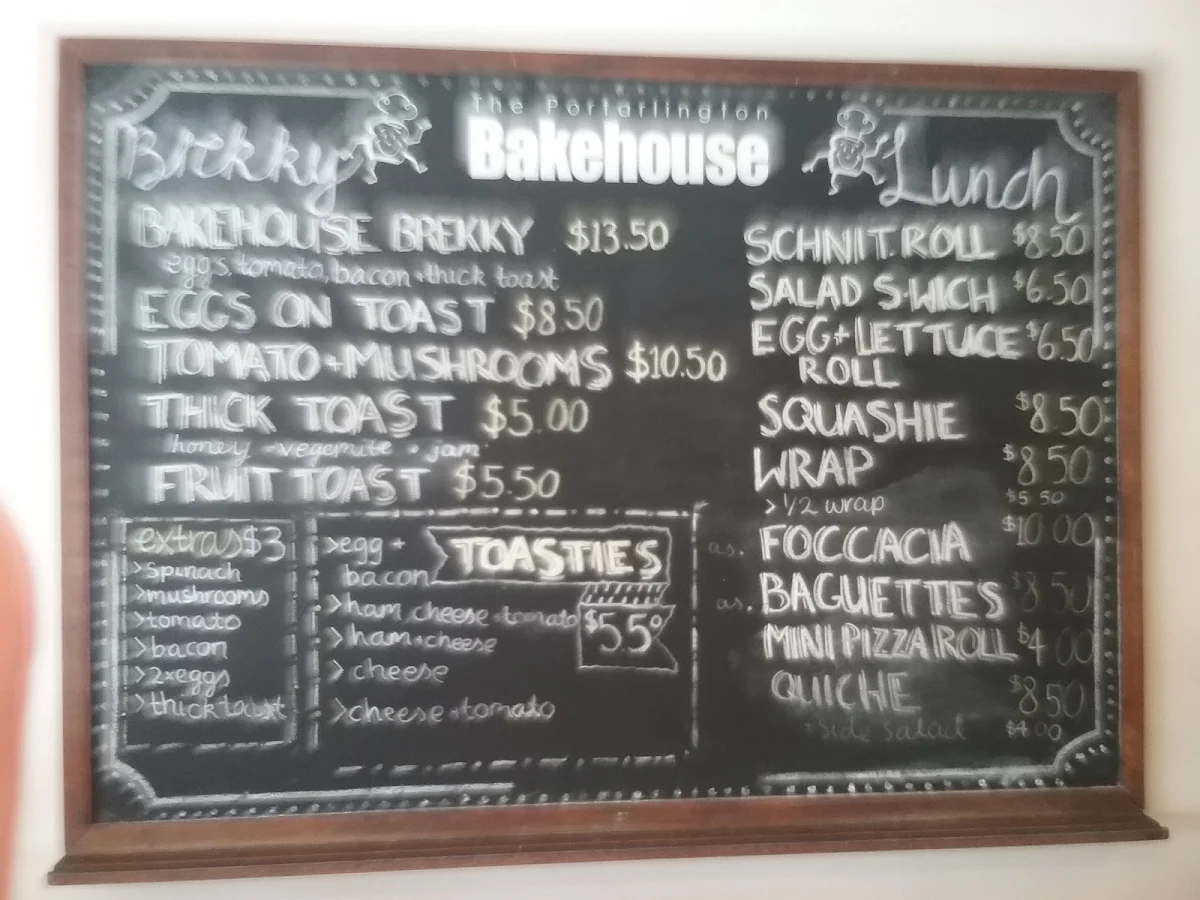 The Portarlington
Bakehouse
Brekky
BAKEHOUSE BREKKY $13.50
eggs, tomato, bacon + thick toast
EGGS ON TOAST $8.50
TOMATO + MUSHROOMS $10.50
THICK TOAST $5.00
honey - vegemite • jam
FRUIT TOAST $5.50
extras $3
>spinach
>mushrooms
>tomato
>bacon
>2xeggs
>thick toast
TOASTIES
$5.50
>egg +
bacon
>ham, cheese + tomato
>ham + cheese
>cheese
>cheese + tomato
Lunch
SCHNIT. ROLL $8.50
SALAD S.WICH $6.50
EGG + LETTUCE $6.50
ROLL
SQUASHIE $8.50
WRAP $8.50
>1/2 wrap $5.50
as. FOCCACIA $10.00
as. BAGUETTE'S $8.50
MINI PIZZA ROLL $4.00
QUICHE $8.50
+ side salad $4.00